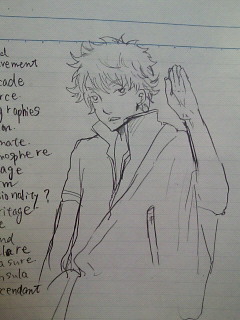 vement
cade
rce
graphies
on.
mate.
mosphere
age
m
sionality?
ritage
e
nd
lare
asure
nsula
scendant